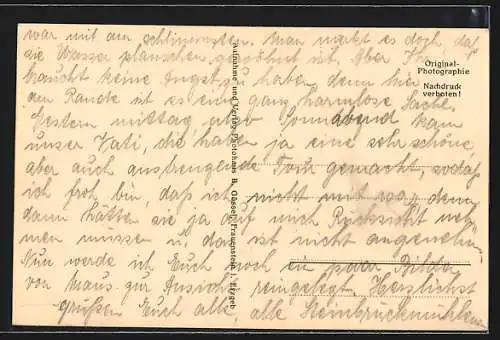 war mit am schlimmsten. Man merkt es doch, daß
sie Wasser planschen gewöhnt ist. Aber Ihr
braucht keine Angst zu haben denn hier
am Rande ist es eine ganz harmlose Sache.
Gestern mittag also Sonnabend kam
unser Vati, die haben ja eine sehr schöne
aber auch anstrengende Tour gemacht, sodaß
ich froh bin, daß ich nicht mit war denn
dann hätten sie ja auf mich Rücksicht neh-
men müssen u. das ist nicht angenehm.
Nun werde ich Euch noch ein paar Bilder
von Maus zur Ansicht reingelegt. Herzlichst
grüßen Euch alle, alle Steinbrückmühlen
Original-
Photographie
Nachdruck
verboten!
Aufnahme und Verlag Photohaus B. Gössel, Frauenstein i. Erzgeb.